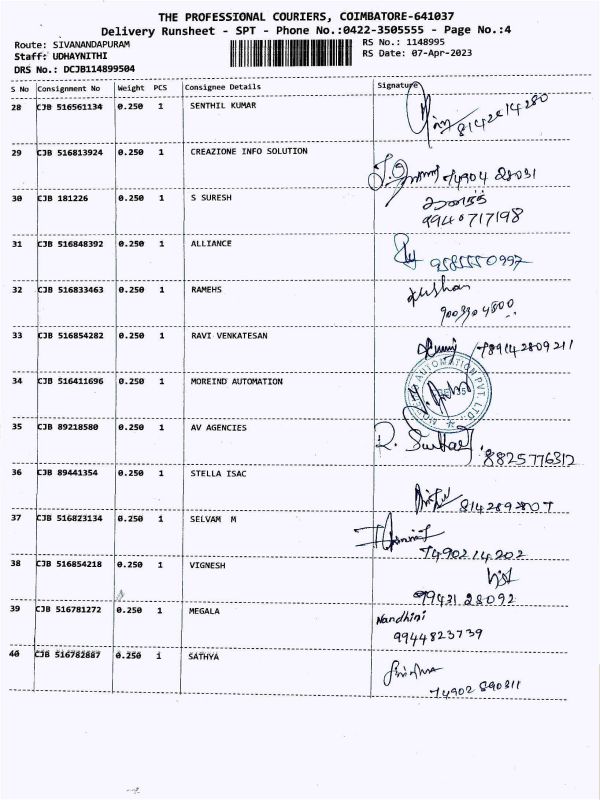 THE PROFESSIONAL COURIERS, COIMBATORE-641037
Delivery Runsheet - SPT - Phone No.:0422-3505555 - Page No.:4
Route: SIVANANDAPURAM RS No.: 1148995
Staff: UDHAYNITHI RS Date: 07-Apr-2023
DRS No.: DCJB114899504
S No Consignment No Weight PCS Consignee Details Signature
28 CJB 516561134 0.250 1 SENTHIL KUMAR
29 CJB 516813924 0.250 1 CREAZIONE INFO SOLUTION
74904 28031
30 CJB 181226 0.250 1 S SURESH
9940717198
31 CJB 516848392 0.250 1 ALLIANCE
9585550997
32 CJB 516833463 0.250 1 RAMEHS
33 CJB 516854282 0.250 1 RAVI VENKATESAN
34 CJB 516411696 0.250 1 MOREIND AUTOMATION
AUTOMATION PVT. LTD.
35 CJB 89218580 0.250 1 AV AGENCIES
8825776312
36 CJB 89441354 0.250 1 STELLA ISAC
8142892807
37 CJB 516823134 0.250 1 SELVAM M
7490214202
38 CJB 516854218 0.250 1 VIGNESH
99431 28092
39 CJB 516781272 0.250 1 MEGALA
Nandhini
9944823739
40 CJB 516782887 0.250 1 SATHYA
74902 890311